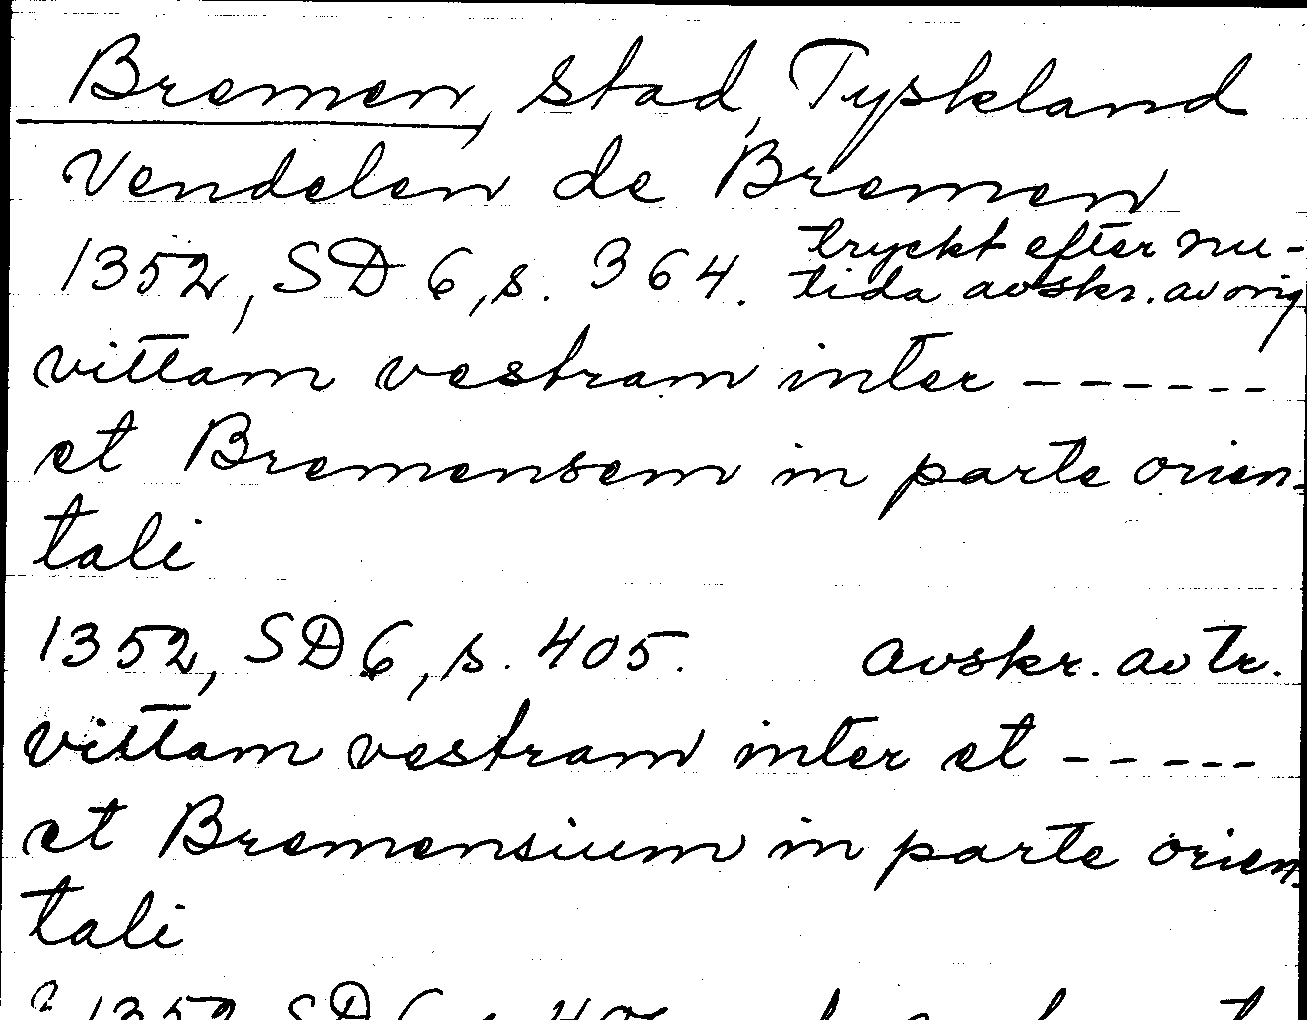 Bremen, stad, Tyskland
Vendelen de Bremen
1352, SD 6, s. 364. tryckt efter nu-
tida avskr. av orig.
vittam vestram inter ------
et Bremensem in parte orien-
tali
1352, SD 6, s. 405. avskr. av tr.
vittam vestram inter et -----
et Bremensium in parte orien-
tali
? 1352 SD 6 s 40